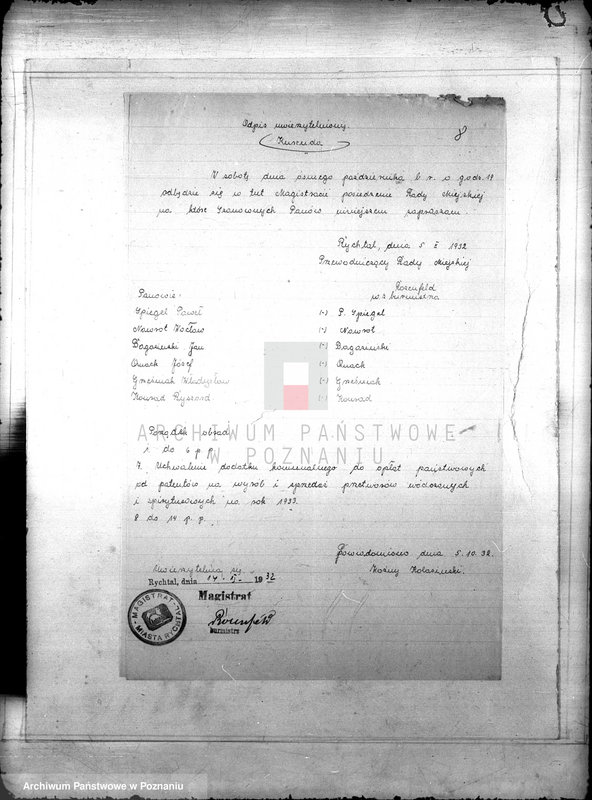 Odpis uwierzytelniony.
8
Kurenda
W sobotę dnia ósmego października b r. o godz. 19
odbędzie się w tut Magistracie posiedzenie Rady Miejskiej
na które Szanownych Panów niniejszem zapraszam.
Rychtal, dnia 5 X 1932
Przewodniczący Rady Miejskiej
Rosenfeld
w.z. burmistrza
Panowie:
Spiegel Paweł (-) P. Spiegel
Nawrot Wacław (-) Nawrot
Bagasinski Jan (-) Bagasinski
Quack Józef (-) Quack
Grzesiak Władysław (-) Grzesiak
Konrad Ryszard (-) Konrad
Porządek obrad
1 do 6 p p
7. Uchwalenie dodatku komunalnego do opłat państwowych
od patentów na wyrób i sprzedaż przetworów wódczanych
i spirytusowych na rok 1933.
8 do 14 p. p.
Powiadomiono dnia 5.10.32.
Woźny
Uwierzytelnia się
Rychtal, dnia 14. 1932
Magistrat
burmistrz
MAGISTRAT MIASTA RYCHTAL
ARCHIWUM PAŃSTWOWE
W POZNANIU
Archiwum Państwowe w Poznaniu